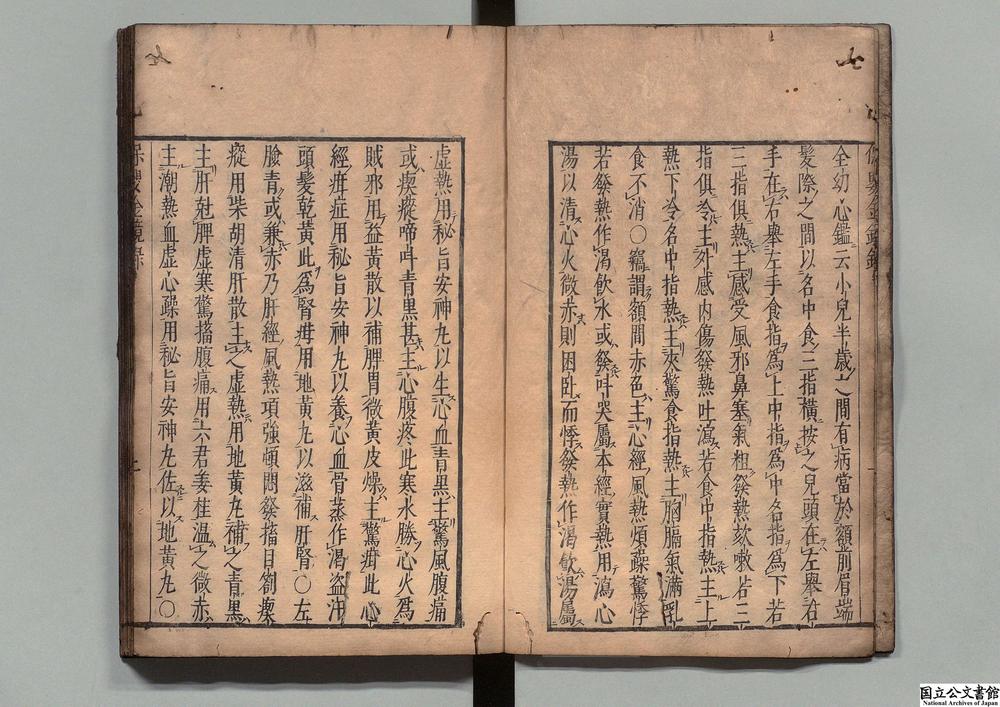 全幼心鑑云小兒半歲之間有病當於額前眉端
髮際之間以名中食三指橫按之兒頭在左舉右
手在右舉左手食指爲上中指爲中名指爲下若
三指俱熱主感受風邪鼻塞氣粗發熱欬嗽若三
指俱冷主外感內傷發熱吐瀉若食中指熱主上
熱下冷名中指熱主夾驚食指熱主胸膈氣滿乳
食不消〇經謂額間赤色主心經風熱煩躁驚悸
若發熱作渴飲水或發叫哭屬本經實熱用瀉心
湯以清心火微赤則困臥而悸發熱作渴飲湯屬
虛熱用秘旨安神丸以生心血青黑主驚風腹痛
或瘈瘲啼叫青黑甚主心腹疼此寒水勝心火爲
賊邪用益黃散以補脾胃微黃皮燥主驚疳此心
經疳症用秘旨安神丸以養心血骨蒸作渴盜汗
頭髮乾黃此爲腎疳用地黃丸以滋補肝腎〇左
臉青或兼赤乃肝經風熱項強頓悶發搐目劄瘈
瘲用柴胡清肝散主之虛熱用地黃丸補之青黑
主肝尅脾虛寒驚搐腹痛用六君姜桂溫之微赤
主潮熱血虛心躁用秘旨安神丸佐以地黃丸〇
七
七
上
国立公文書館
National Archives of Japan